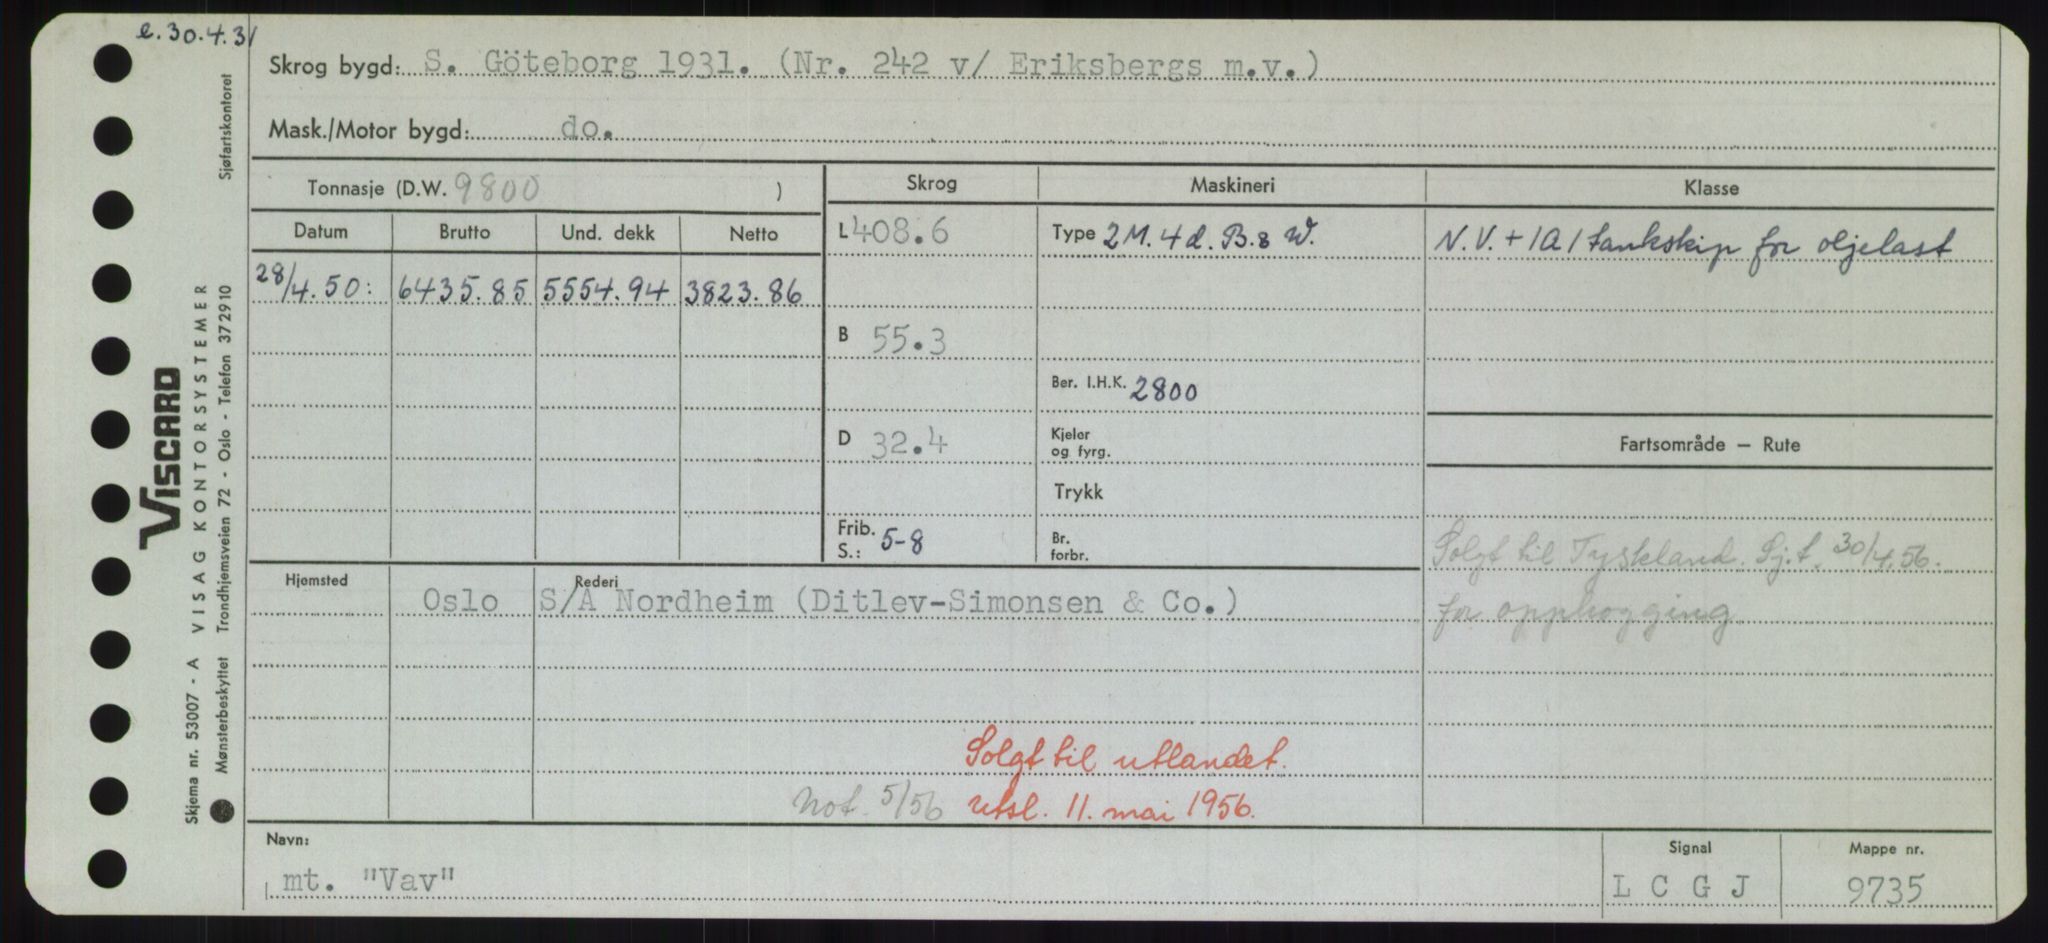 e. 30.4.31
Skrog bygd: S. Göteborg 1931. (Nr. 242 v/ Eriksbergs m.v.)
Mask./Motor bygd: do.
Tonnasje (D.W. 9800 )
Skrog
Maskineri
Klasse
Datum Brutto Und. dekk Netto
L 408.6
Type 2 M. 4 d. B. & W.
N.V. + 1A1 tankskip for oljelast
28/4.50: 6435.85 5554.94 3823.86
B 55.3
Ber. I.H.K. 2800
D 32.4
Kjeler
og fyrg.
Fartsområde — Rute
Trykk
Frib.
S.: 5-8
Br.
forbr.
Solgt til Tyskland. Sj.t. 30/4.56.
for opphogging
Hjemsted
Rederi
Oslo S/A Nordheim (Ditlev-Simonsen & Co.)
Solgt til utlandet.
Not. 5/56 utsl. 11. mai 1956.
Navn:
mt. "Vav"
Signal
L C G J
Mappe nr.
9735
Sjøfartskontoret
VISCARD
VISAG KONTORSYSTEMER
Skjema nr. 53007 - A
Mønsterbeskyttet Trondhjemsveien 72 - Oslo - Telefon 372910